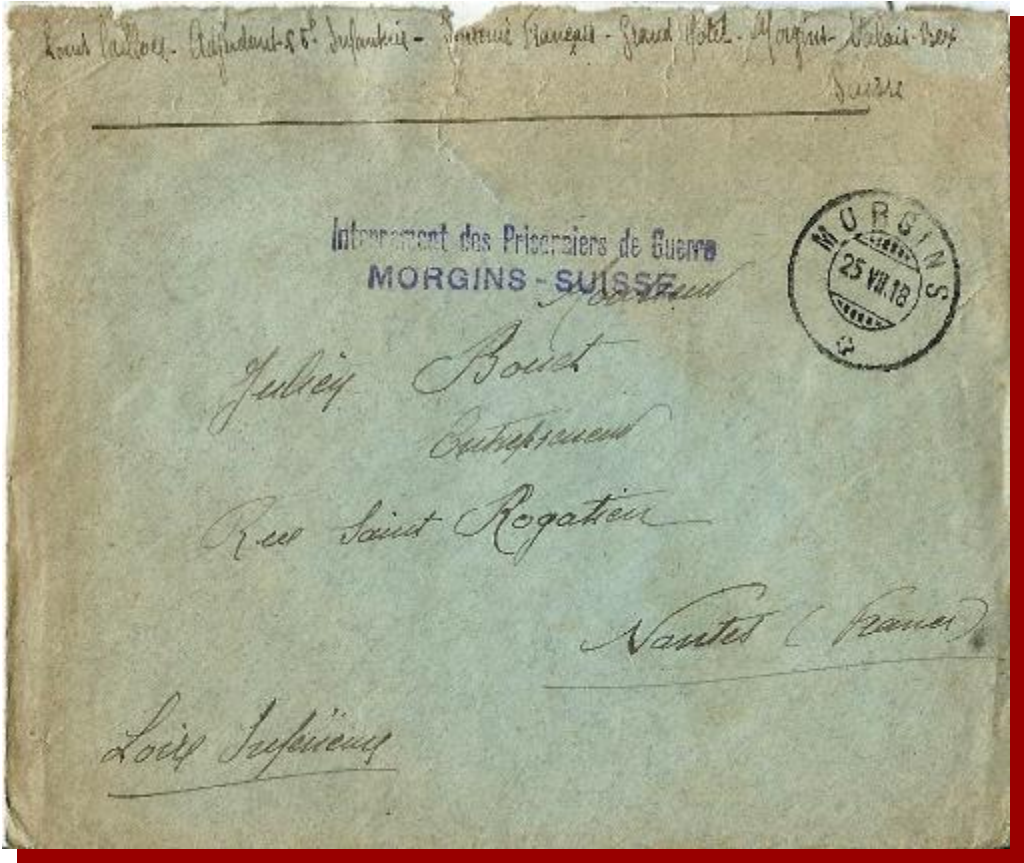 Louis - Adjudant 65e Infanterie - Interné Français - Grand Hotel - Morgins - Valais - Bex
Suisse
Internement des Prisonniers de Guerre
MORGINS - SUISSE
Monsieur
MORGINS
25 VII.18
Julien Bouet
Entrepreneur
Rue Saint Rogatien
Nantes (France)
Loire Inférieure